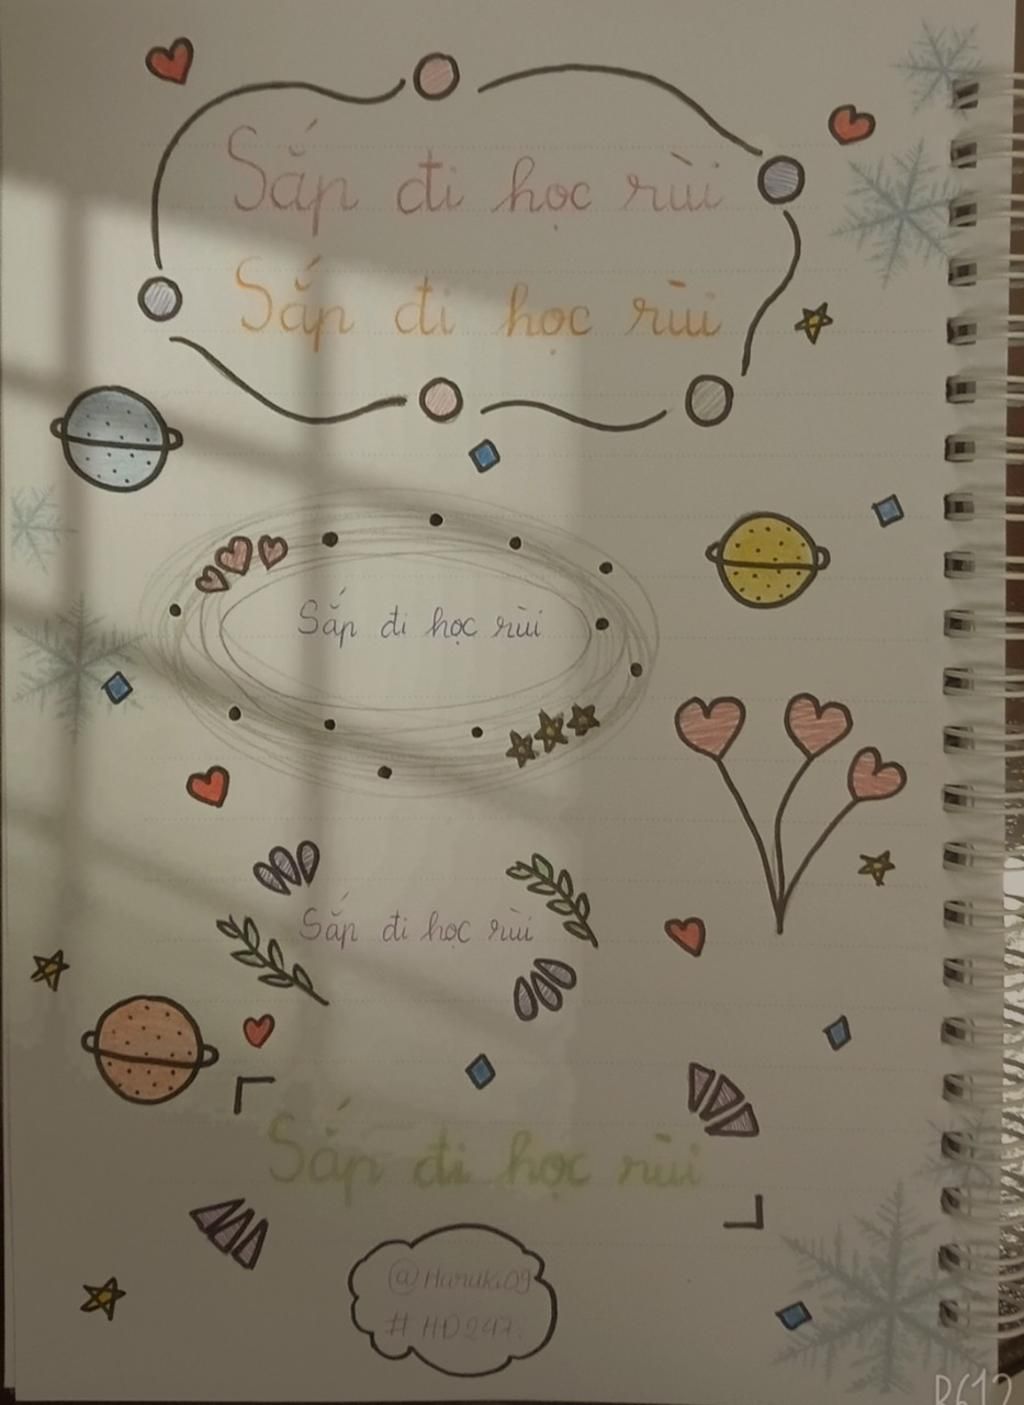 Sắp đi học rùi
Sắp đi học rùi
Sắp đi học rùi
Sắp đi học rùi
Sắp đi học rùi
@Haruki09
#HD247
B612